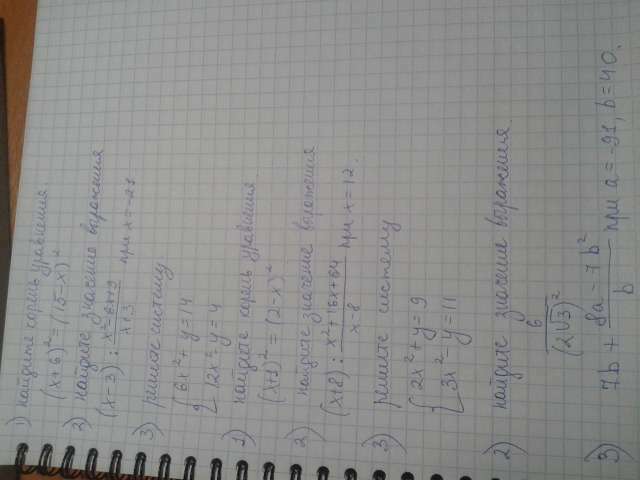 1) найдите корень уравнения
(x+6)² = (15-x)²
2) найдите значение выражения
(x-3) : (x²-6x+9)/(x+3) при x = -21
3) решите систему
{ 6x² + y = 14
12x² - y = 4
1) найдите корень уравнения
(x+1)² = (2-x)²
2) найдите значение выражения
(x+8) : (x²+16x+64)/(x-8) при x = 12.
3) решите систему
{ 2x² + y = 9
3x² - y = 11
2) найдите значение выражения.
6/(2√3)²
3) 7b + (8a - 7b²)/b при a = -91, b = 40.